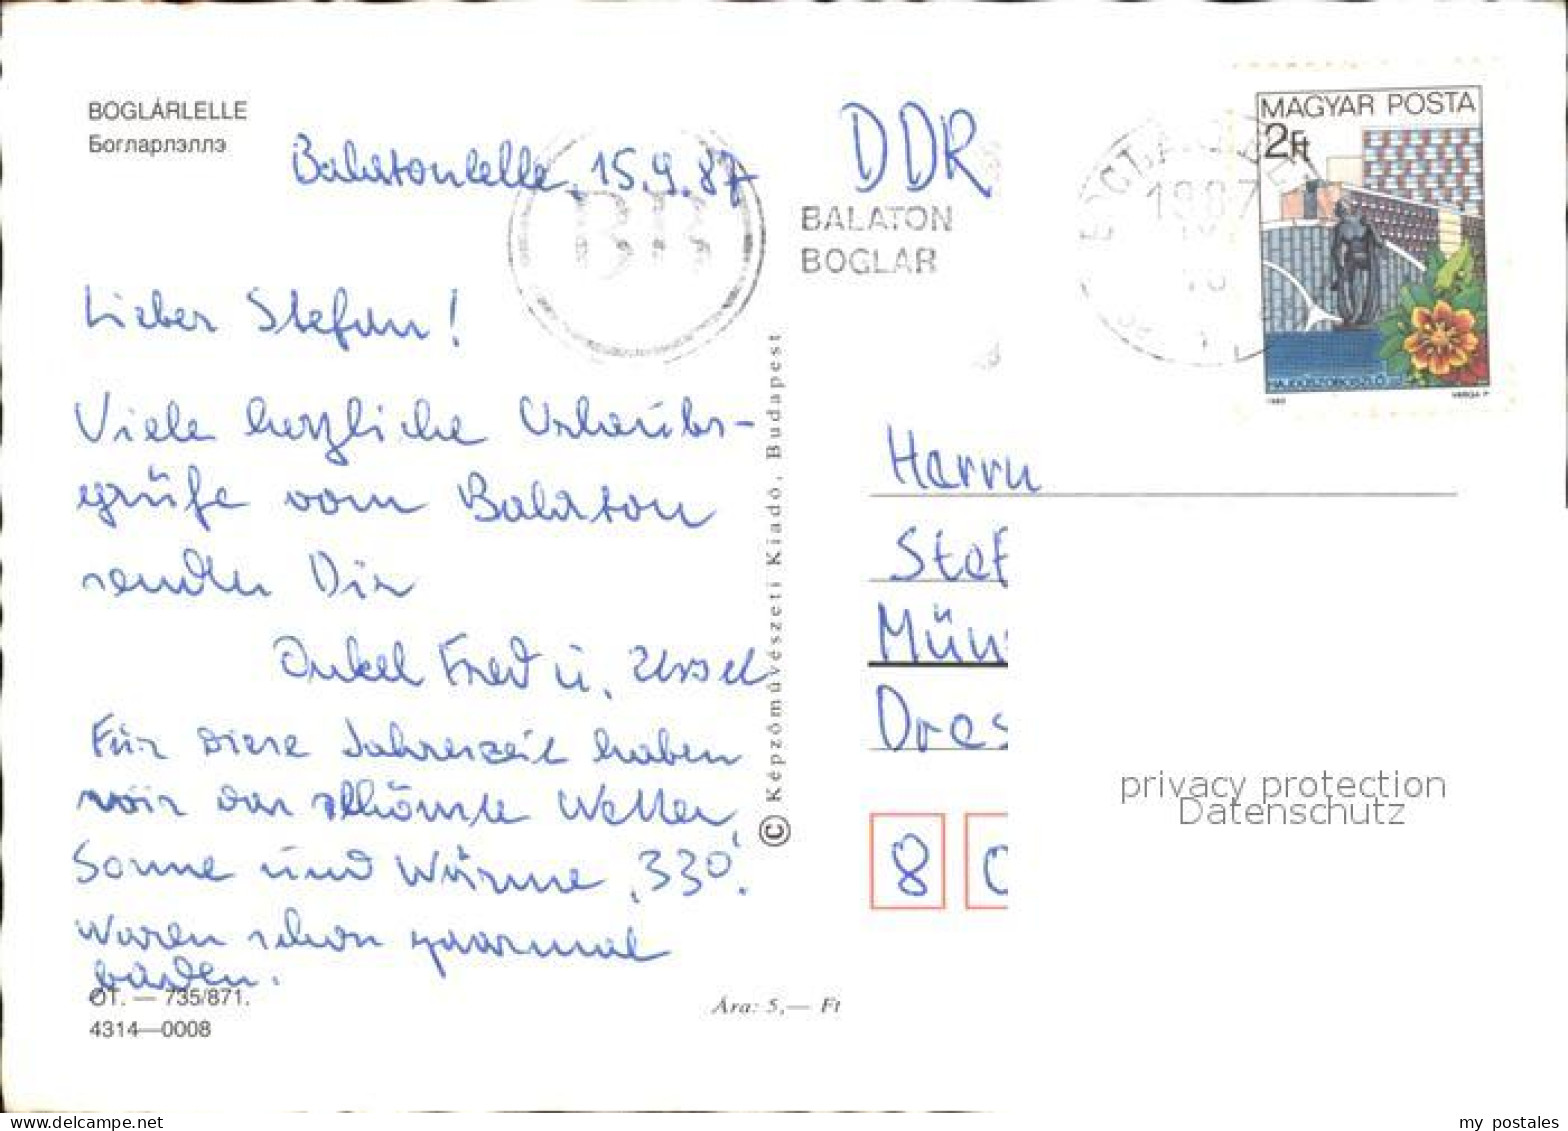 BOGLÁRLELLE
Богларлэллэ
Balatonlelle, 15.9.87
Lieber Stefan!
Viele herzliche Urlaubs-
grüße vom Balaton
senden Dir
Onkel Fred u. Ursel
Für diese Jahreszeit haben
wir das schönste Wetter,
Sonne und Wärme, 33°.
Waren schon paarmal
baden.
OT. — 735/871.
4314—0008
Ára: 5,— Ft
© Képzőművészeti Kiadó, Budapest
DDR
BALATON
BOGLAR
1987
MAGYAR POSTA
2Ft
HAJDÚSZOBOSZLÓ
1983
VARGA P.
Herrn
Stef
Mün
Dres
8 0
privacy protection
Datenschutz
my postales